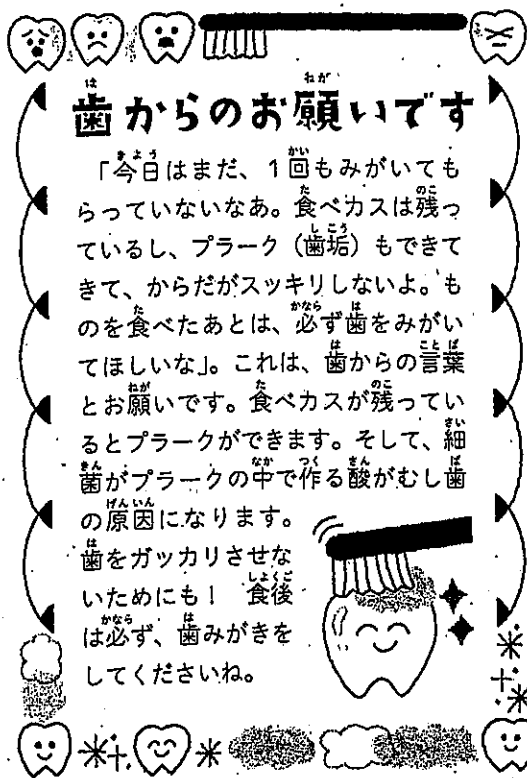 歯からのお願いです
「今日はまだ、1回もみがいても
らっていないなあ。食べカスは残っ
ているし、プラーク（歯垢）もできて
きて、からだがスッキリしないよ。も
のを食べたあとは、必ず歯をみがい
てほしいな」。これは、歯からの言葉
とお願いです。食べカスが残ってい
るとプラークができます。そして、細
菌がプラークの中で作る酸がむし歯
の原因になります。
歯をガッカリさせな
いためにも！　食後
は必ず、歯みがきを
してくださいね。